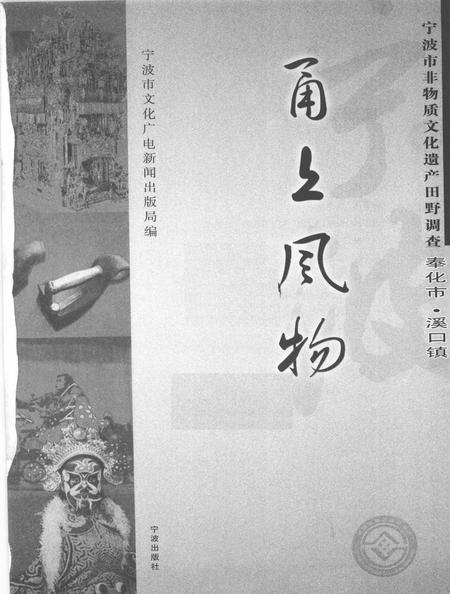 宁波市非物质文化遗产田野调查 奉化市·溪口镇
甬上风物
宁波市文化广电新闻出版局编
宁波出版社